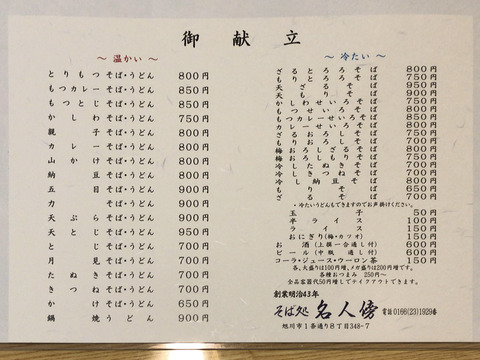 御献立
～ 温かい ～
とりもつそば・うどん 800円
もつカレーそば・うどん 850円
もつとじそば・うどん 850円
かしわそば・うどん 750円
親子そば・うどん 800円
カレーそば・うどん 800円
山かけそば・うどん 800円
納豆そば・うどん 800円
五目そば・うどん 900円
力そば・うどん 900円
天ぷらそば・うどん 900円
天とじそば・うどん 950円
月見そば・うどん 700円
たぬきそば・うどん 700円
きつねそば・うどん 700円
かけそば・うどん 650円
鍋焼うどん 900円
～ 冷たい ～
ざるとろろそば 800円
もりとろろそば 750円
天ざるそば 950円
天もりそば 900円
かしわせいろそば 750円
もつせいろそば 800円
もつカレーせいろそば 850円
カレーせいろそば 800円
ざるおろしそば 750円
もりおろしそば 700円
梅おろしざるそば 800円
梅おろしもりそば 750円
冷したぬきそば 700円
冷しきつねそば 700円
冷し納豆そば 700円
もりそば 650円
ざるそば 700円
・冷たいうどんもできますのでお声掛けください。
玉子 50円
半ライス 100円
ライス 150円
おにぎり(梅・カツオ) 150円
お酒(上撰一合通し付) 600円
ビール(中瓶 通し付) 600円
コーラ・ジュース・ウーロン茶 150円
各、大盛りは100円増、メガ盛りは200円増です。
各種おつまみ 250円～
全品容器代50円増しでテイクアウトできます。
創業明治43年
そば処 名人傍 電話0166(23)1929番
旭川市1条通り8丁目348-7